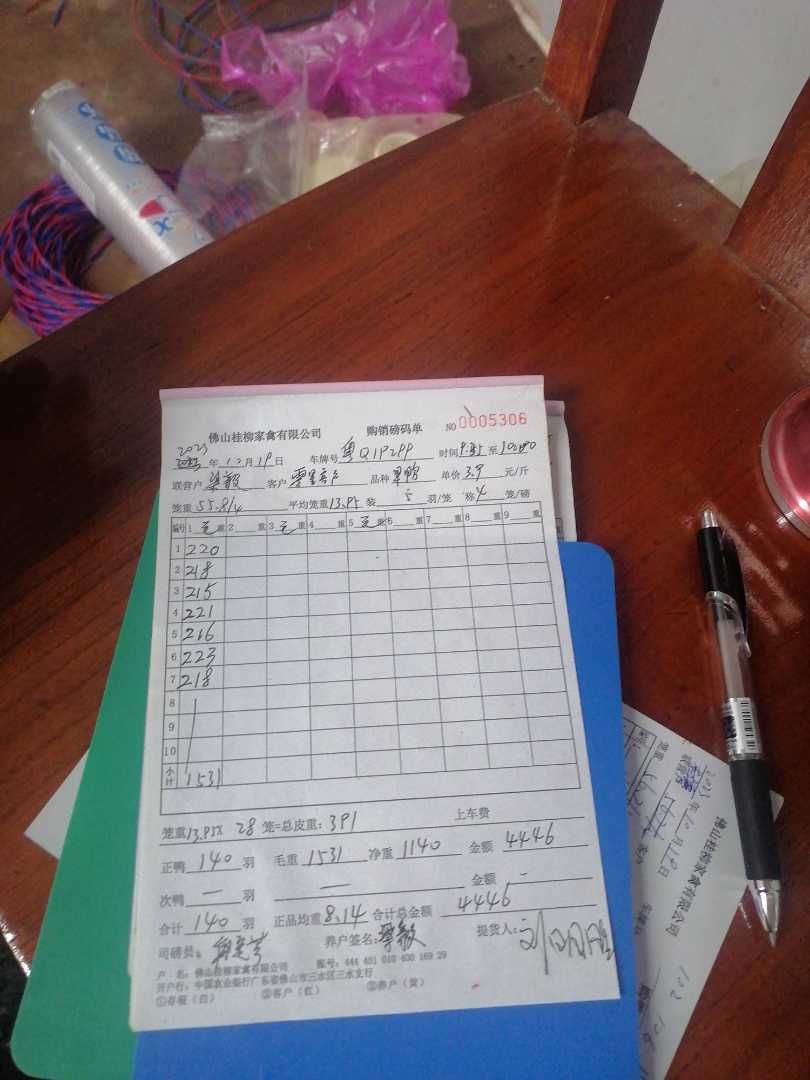 佛山桂柳家禽有限公司 购销磅码单 NO 0005306
2023年12月19日 车牌号 粤Q1P299 时间 至
联营户 梁毅 客户 品种 单价 3.9 元/斤
笼重 55.8/4 平均笼重 13.95 装 5 羽/笼 称 4 笼/磅
编号 1 毛 重 2 重 3 毛 重 4 重 5 毛 重 6 重 7 重 8 重 9 重
1 220
2 218
3 215
4 221
5 216
6 223
7 218
8
9
10
小计 1531
笼重 13.95X 28 笼=总皮重: 391 上车费
正鸭 140 羽 毛重 1531 净重 1140 金额 4446
次鸭 — 羽 — 金额 -
合计 140 羽 正品均重 8.14 合计总金额 4446
司磅员: 养户签名: 梁毅 提货人:
户 名: 佛山桂柳家禽有限公司 账号: 444 451 010 400 169 29
开户行: 中国农业银行广东省佛山市三水区三水支行
①存根(白) ②客户(红) ③养户(黄)
佛山桂柳家禽有限公司
2023年10月12日
客户
笼重